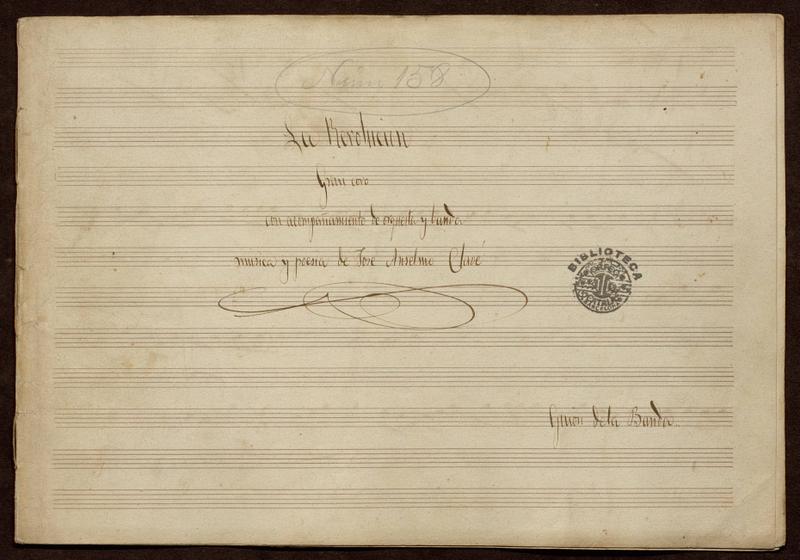 Núm 158
La Revolucion
Gran coro
con acompañamiento de orquesta y banda
musica y poesia de José Anselmo Clavé
BIBLIOTECA
Guion de la Banda.